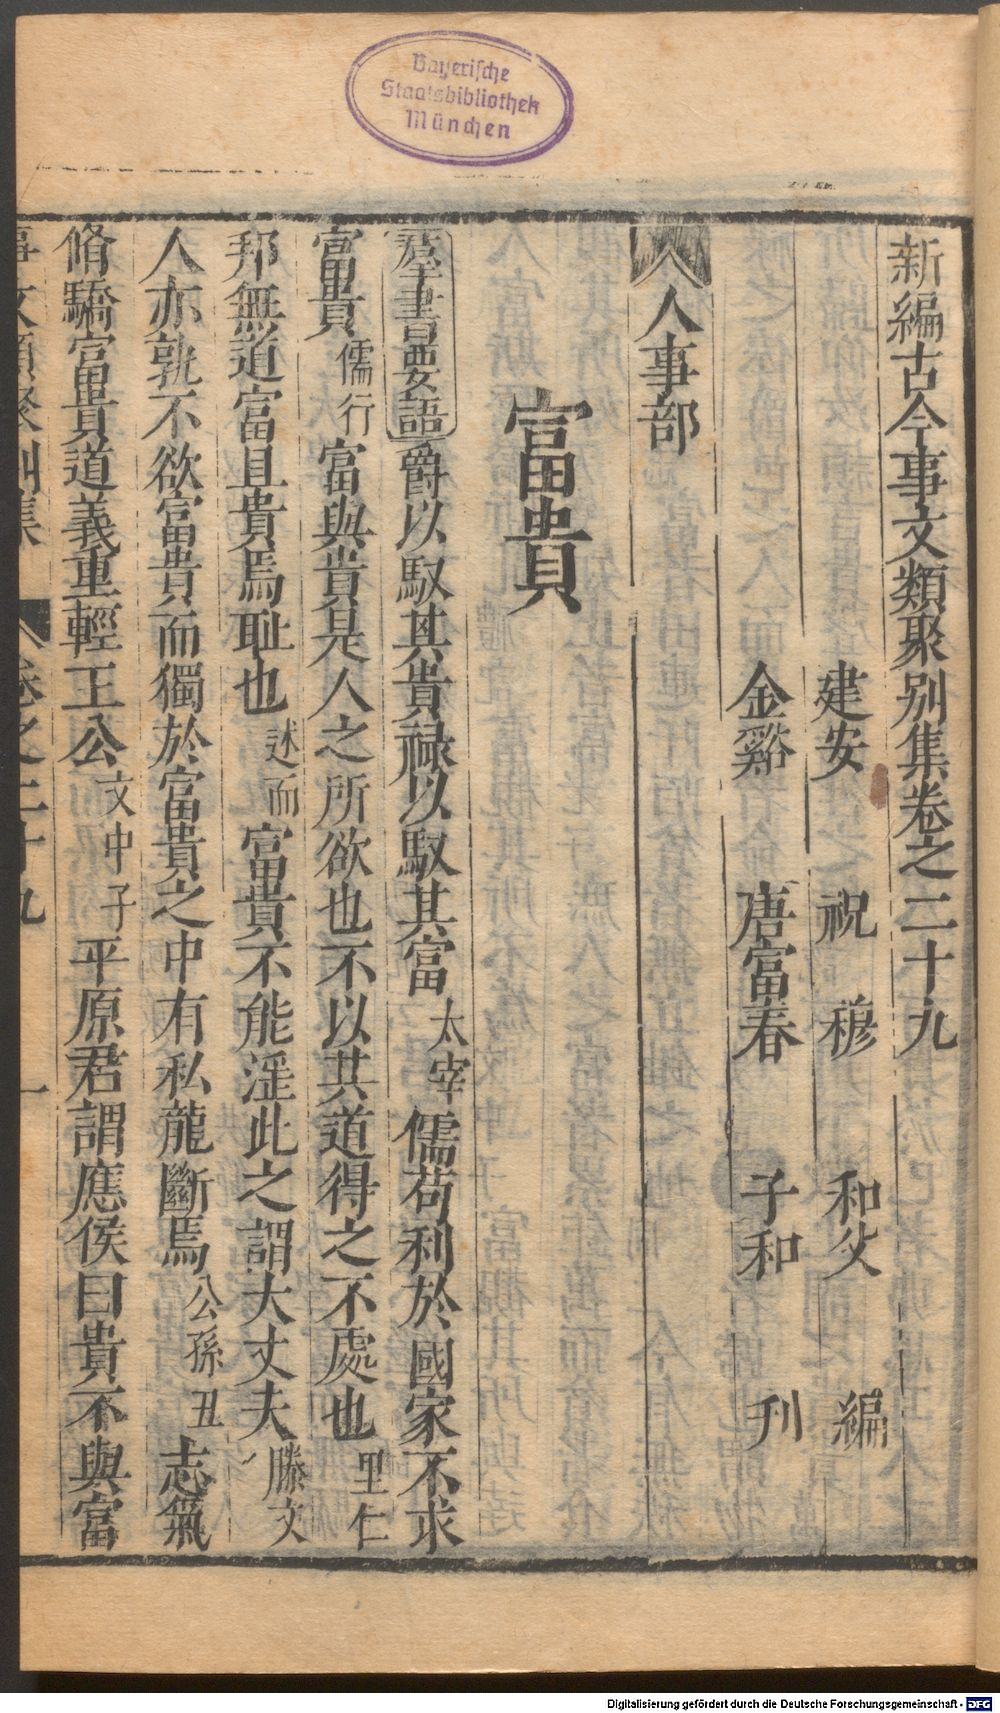 Bayerische
Staatsbibliothek
München
新編古今事文類聚別集卷之二十九
建安 祝穆 和父 編
金谿 唐富春 子和 刊
人事部
富貴
羣書要語爵以馭其貴祿以馭其富太宰儒苟利於國家不求
富貴儒行富與貴是人之所欲也不以其道得之不處也里仁
邦無道富且貴焉恥也述而富貴不能淫此之謂大丈夫滕文
人亦孰不欲富貴而獨於富貴之中有私龍斷焉公孫丑志氣
脩驕富貴道義重輕王公文中子平原君謂應侯曰貴不與富
事文類聚別集 卷之二十九 一
Digitalisierung gefördert durch die Deutsche Forschungsgemeinschaft - DFG